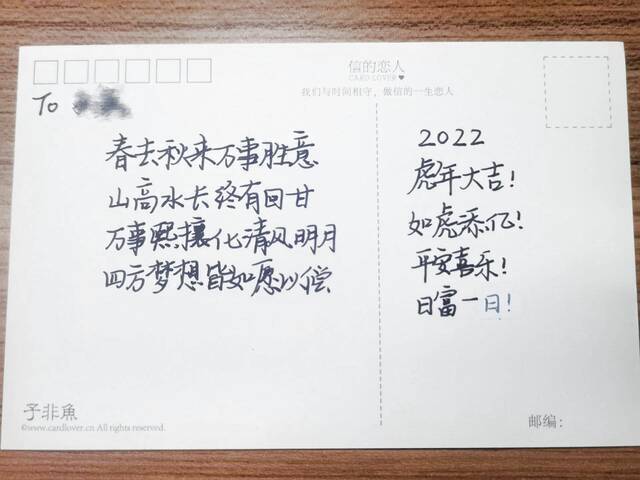 信的恋人
CARD LOVER♥
我们与时间相守，做信的一生恋人
To
春去秋来万事胜意
山高水长终有回甘
万事熙攘化清风明月
四方梦想皆如愿以偿
2022
虎年大吉！
如虎添亿！
平安喜乐！
日富一日！
子非魚
©www.cardlover.cn All rights reserved.
邮编：